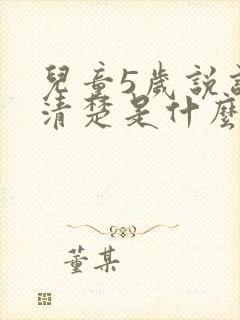 兒童5歲說
清楚是什麼
董某